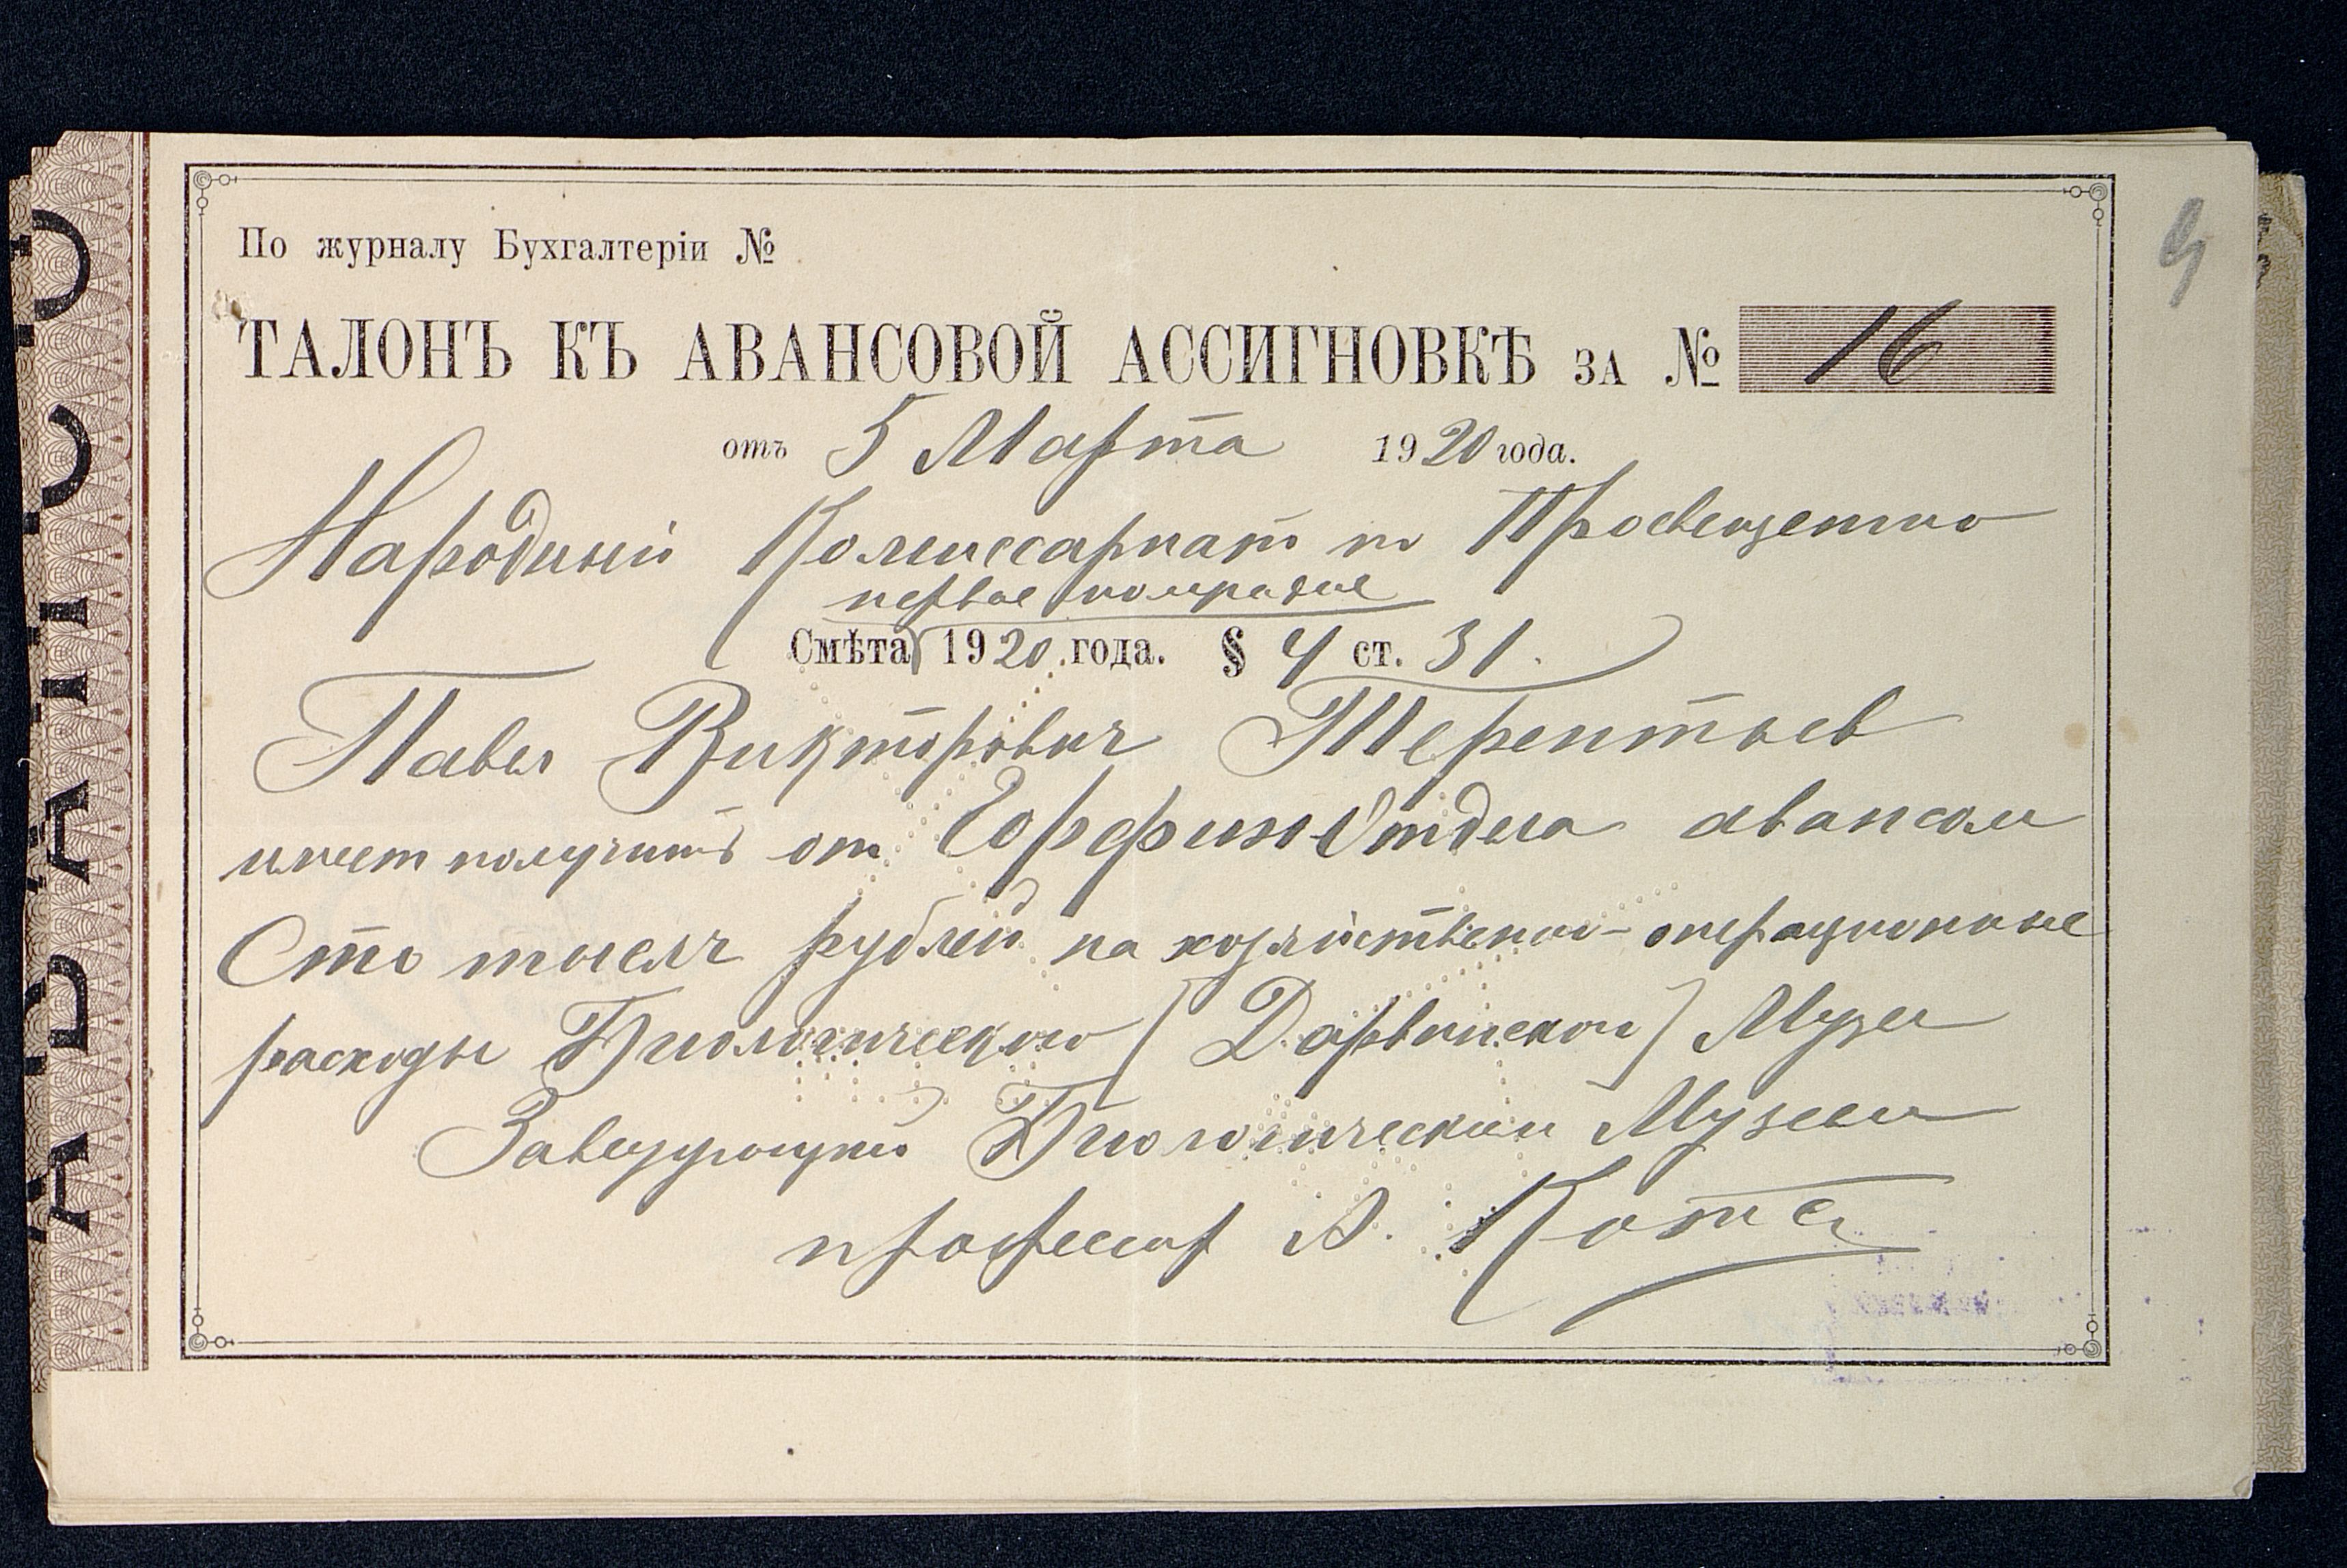 По журналу Бухгалтеріи №
ТАЛОНЪ КЪ АВАНСОВОЙ АССИГНОВКѢ ЗА № 16
отъ 5 Марта 1920 года.
Народный Комиссариат по Просвещению
первое полугодие
Смѣта 1920 года. § 4 ст. 31.
Павел Викторович Терентьев
имеет получить от ГорфинОтдела авансом
Сто тысяч рублей на хозяйственно-операционные
расходы Биологического (Дарвинского) Музея
Заведующий Биологическим Музеем
профессор А. Котс